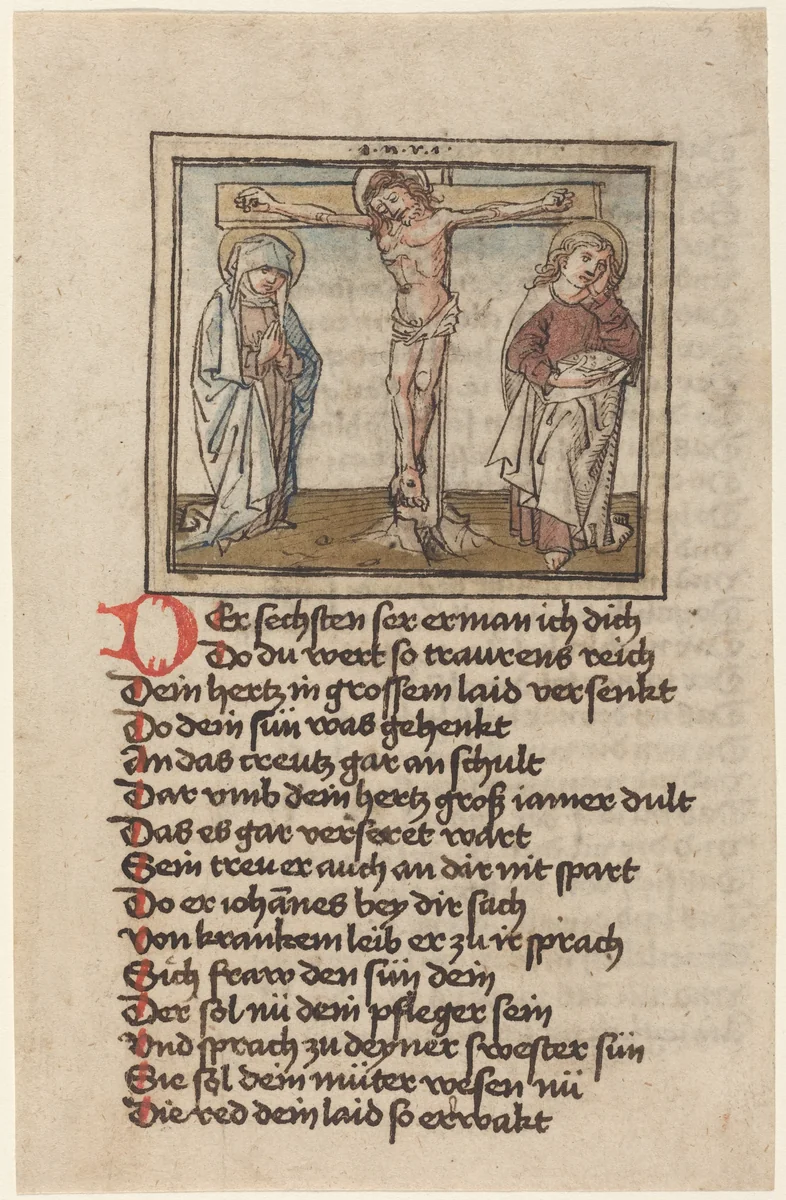 ·I·n·r·i·
DEr sechsten ser erman ich dich
Do du wert so traurens reich
Dein hertz in grossem laid versenkt
Do dein sün was gehenkt
An das creutz gar an schult
Dar vmb dein hertz groß iamer dult
Das es gar verseret wart
Sein treu er auch an dir nit spart
Do er iohānes bey dir sach
Von krankem leib er zu ir sprach
Sich fraw den sün dein
Der sol nü dein pfleger sein
Vnd sprach zu deyner swester sün
Sie sol dein müter wesen nü
Die red dein laid so erwakt